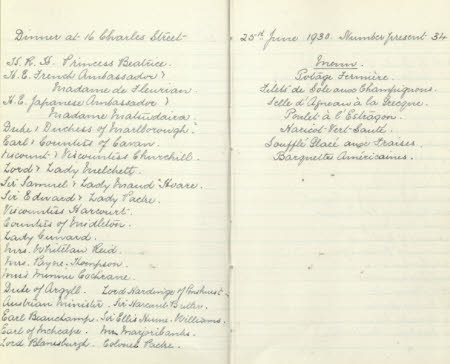 Dinner at 16 Charles Street
H.R.H. Princess Beatrice.
H.E. French Ambassador &
Madame de Fleuriau
H.E. Japanese Ambassador &
Madame Matsudaira.
Duke & Duchess of Marlborough.
Earl & Countess of Cavan.
Viscount & Viscountess Churchill.
Lord & Lady Melchett.
Sir Samuel & Lady Maud Hoare.
Sir Edward & Lady Packe.
Viscountess Harcourt.
Countess of Midleton.
Lady Cunard.
Mrs. Whitelaw Reid.
Mrs. Bayne-Thompson.
Miss Minnie Cochrane.
Duke of Argyll. Lord Hardinge of Penshurst.
Austrian Minister. Sir Harcourt Butler.
Earl Beauchamp. Sir Ellis Hume-Williams.
Earl of Inchcape. Mr. Marjoribanks.
Lord Blanesburgh. Colonel Packe.
25th June 1930. Number present 34
Menu.
Potage Fermière.
Filets de Sole aux Champignons.
Selle d'Agneau à la Grecque.
Poulet à l'Estragon.
Haricot-Vert-Sauté.
Souffle Glacé aux Fraises.
Barquettes Américaines.